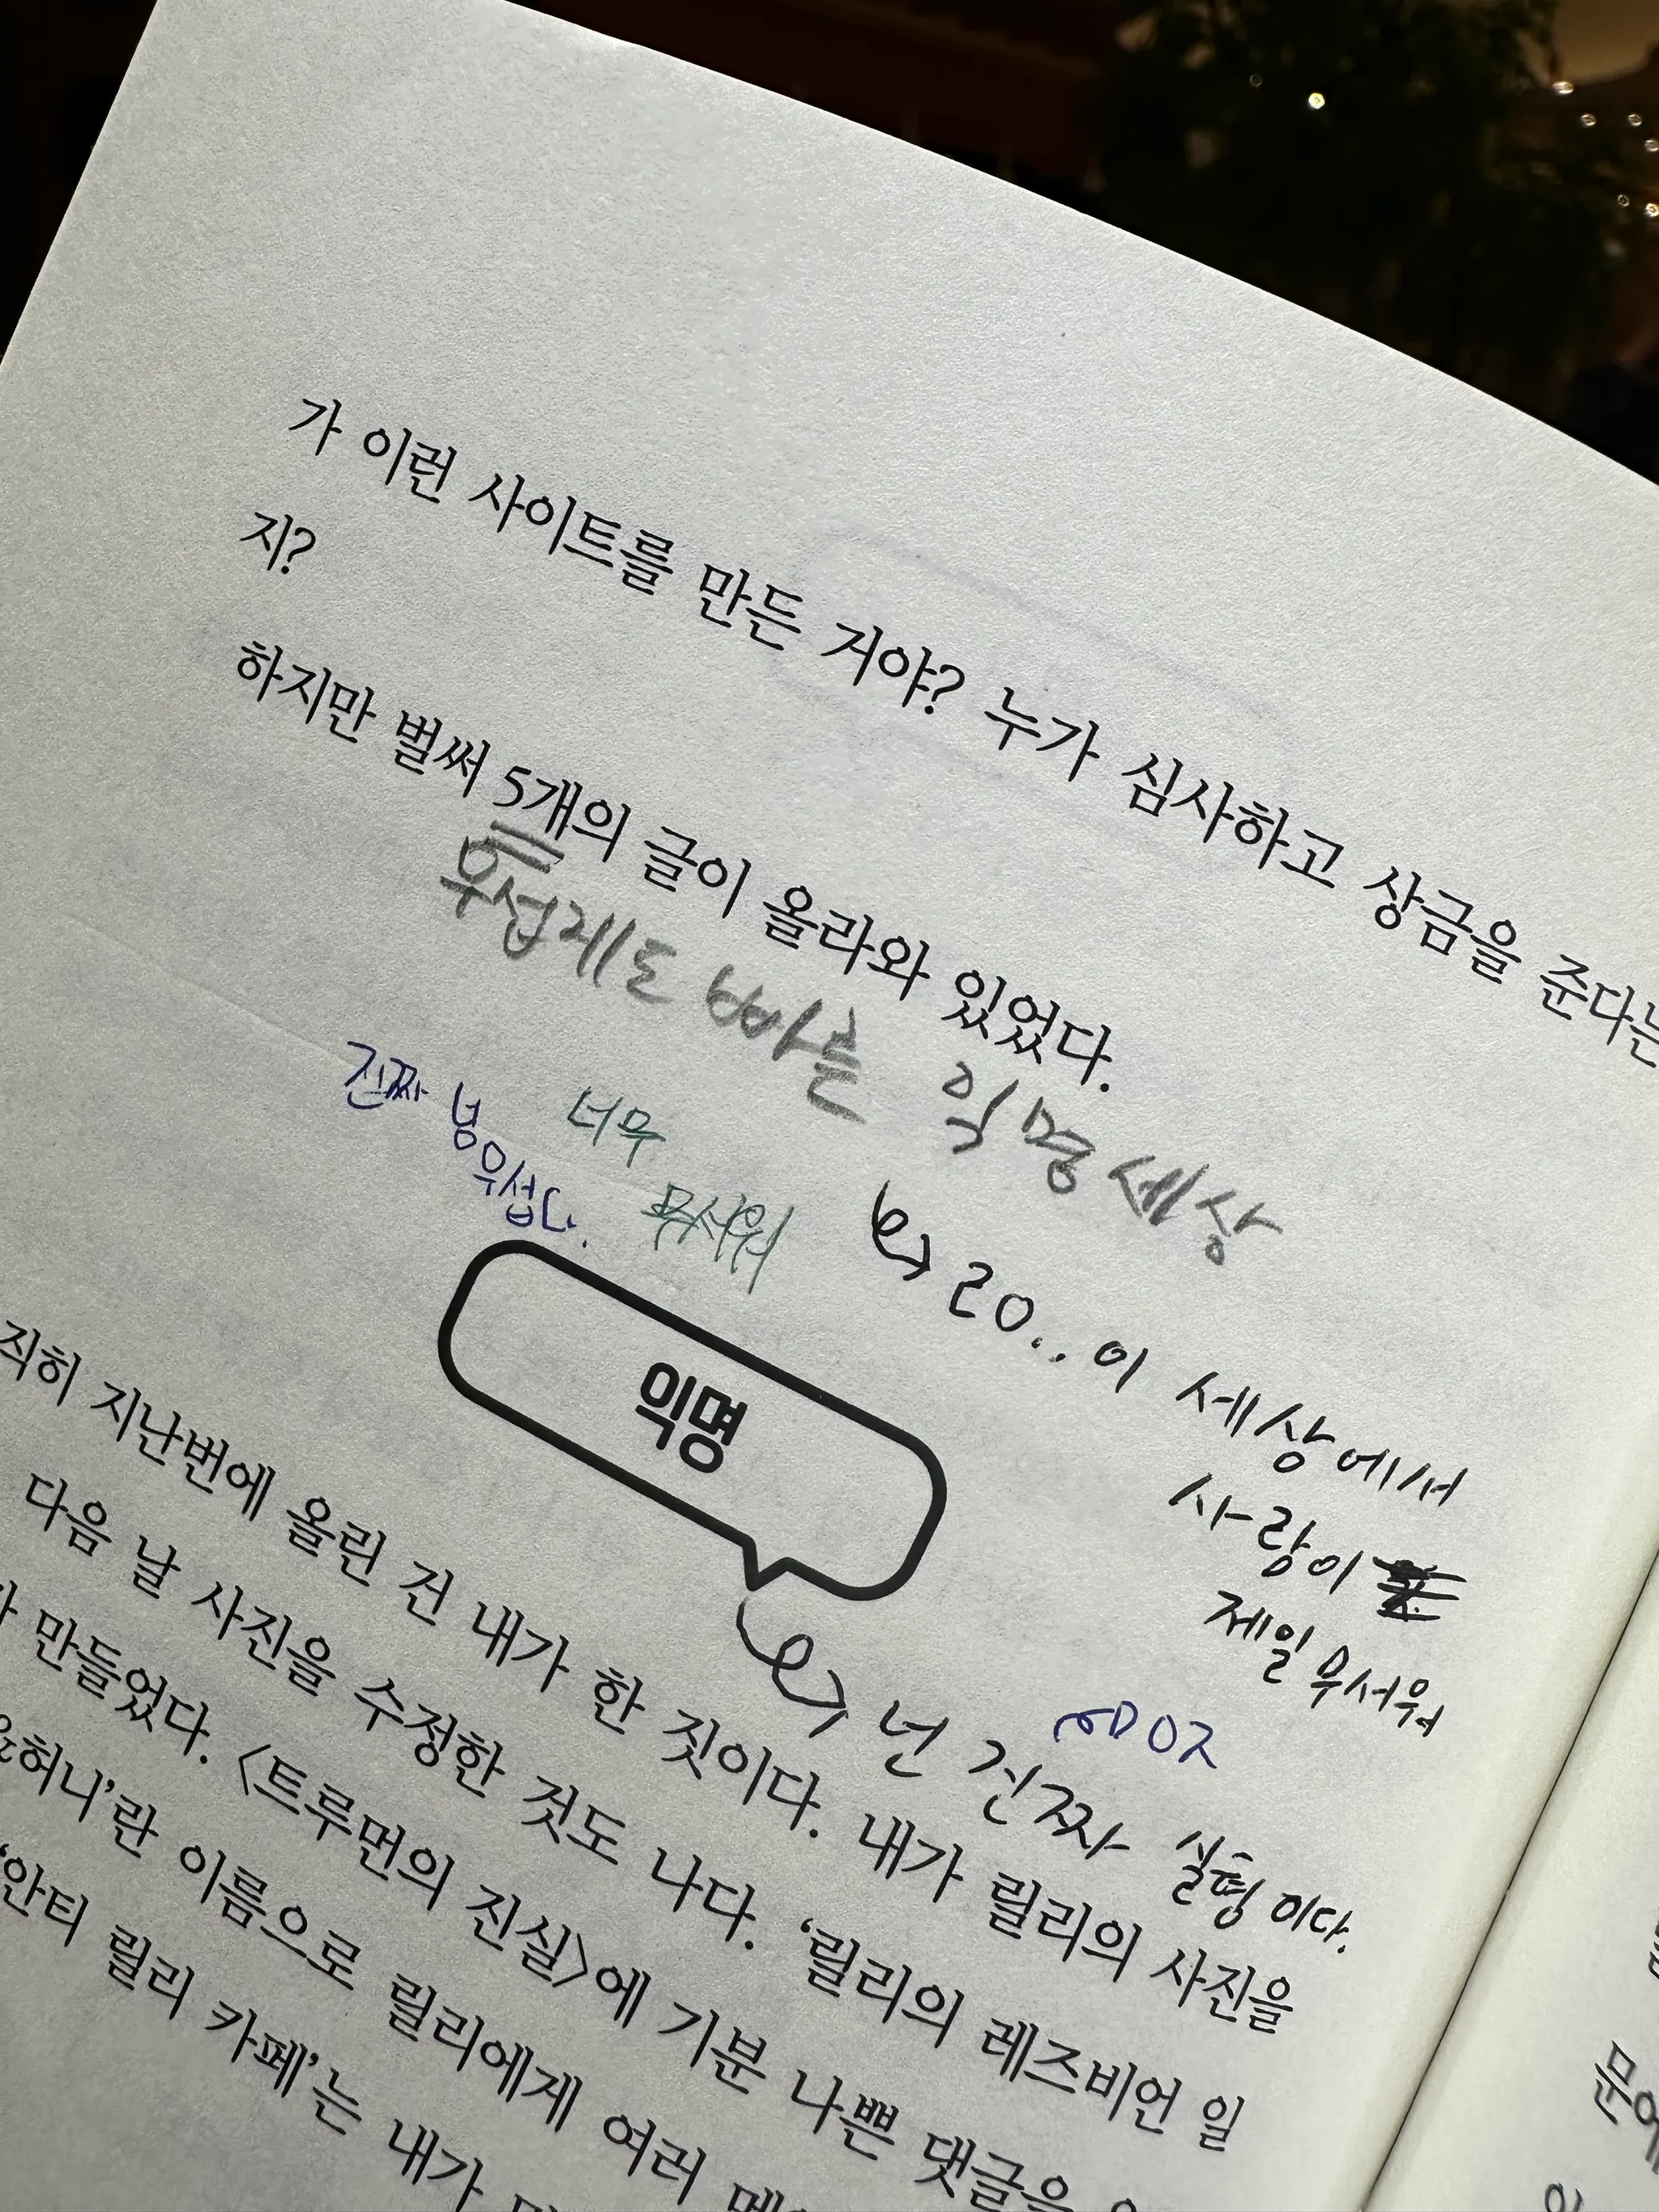 가 이런 사이트를 만든 거야? 누가 심사하고 상금을 준다는
지?
하지만 벌써 5개의 글이 올라와 있었다.
무섭게도 빠른 익명 세상
진짜 넘 무섭다.
너무
무서워
20.. 이 세상에서
사람이
제일 무서워
익명
넌 진짜 실형이다.
직히 지난번에 올린 건 내가 한 짓이다. 내가 릴리의 사진을
다음 날 사진을 수정한 것도 나다. ‘릴리의 레즈비언 일
만들었다. <트루먼의 진실>에 기분 나쁜 댓글을
허니’란 이름으로 릴리에게 여러
‘안티 릴리 카페’는 내가